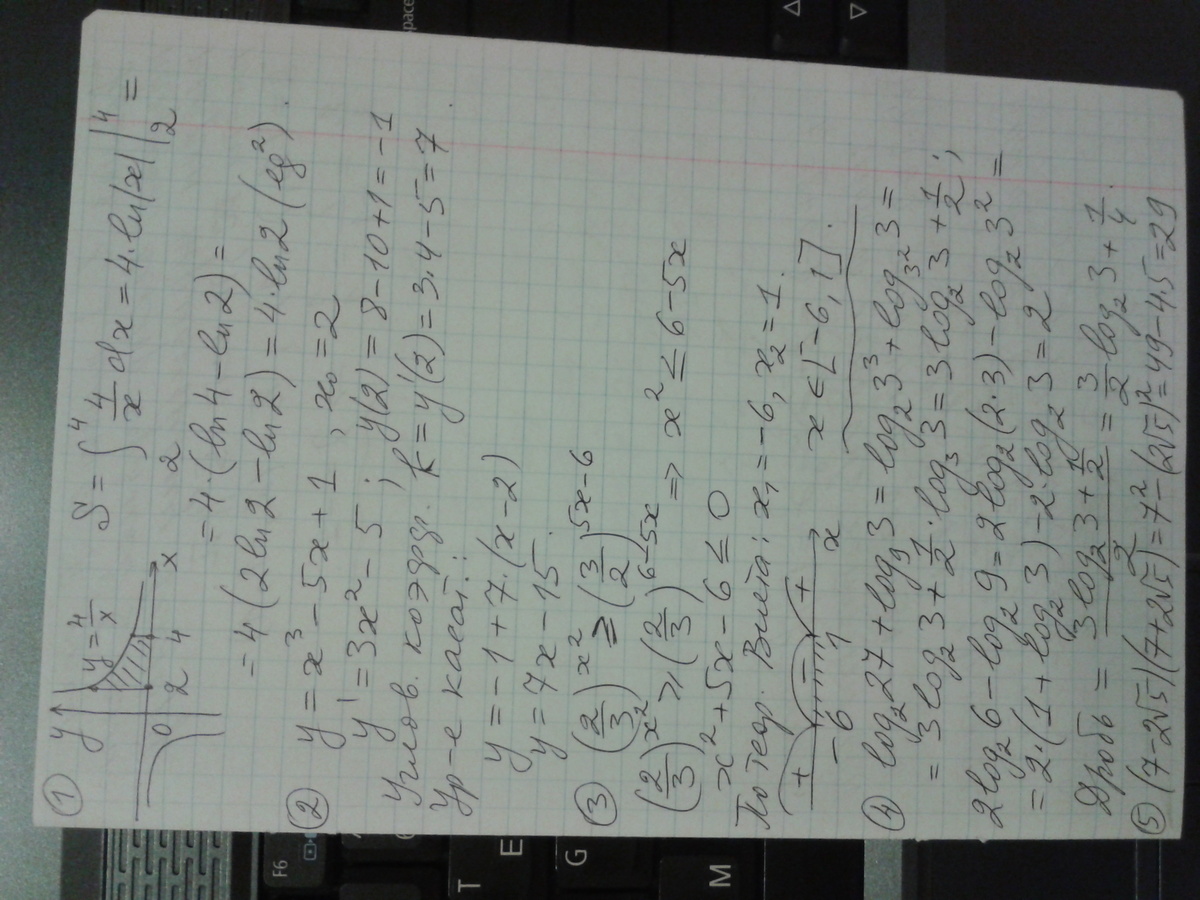 ① y y=4/x 0 2 4 x S = ∫₂⁴ 4/x dx = 4·ln|x| |₂⁴ =
= 4·(ln4 − ln2) =
= 4(2ln2 − ln2) = 4·ln2 (ед²).
② y = x³ − 5x + 1 , x₀ = 2
y' = 3x² − 5 ; y(2) = 8 − 10 + 1 = −1
Углов. коэфф. k = y'(2) = 3·4 − 5 = 7.
Ур-е касат.:
y = −1 + 7·(x − 2)
y = 7x − 15.
③ (2/3)^(x²) ≥ (3/2)^(5x−6)
(2/3)^(x²) ≥ (2/3)^(6−5x) => x² ≤ 6 − 5x
x² + 5x − 6 ≤ 0
По теор. Виета: x₁ = −6, x₂ = 1.
+ − + −6 1 x x ∈ [−6, 1].
④ log₂27 + log₉3 = log₂3³ + log_(3²)3 =
= 3log₂3 + 1/2·log₃3 = 3log₂3 + 1/2 ;
2log₂6 − log₂9 = 2log₂(2·3) − log₂3² =
= 2·(1 + log₂3) − 2·log₂3 = 2
Дробь = (3log₂3 + 1/2)/2 = 3/2 log₂3 + 1/4.
⑤ (7 − 2√5)(7 + 2√5) = 7² − (2√5)² = 49 − 4·5 = 29
F6
E
T
G
M
space